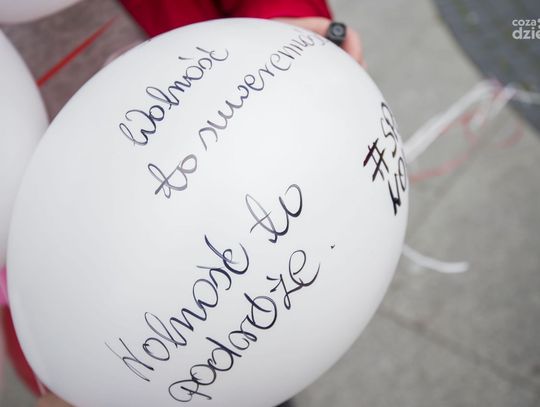 Wolność
to suwerenność
#SP
Wolność to
podróże.
coza
dzie